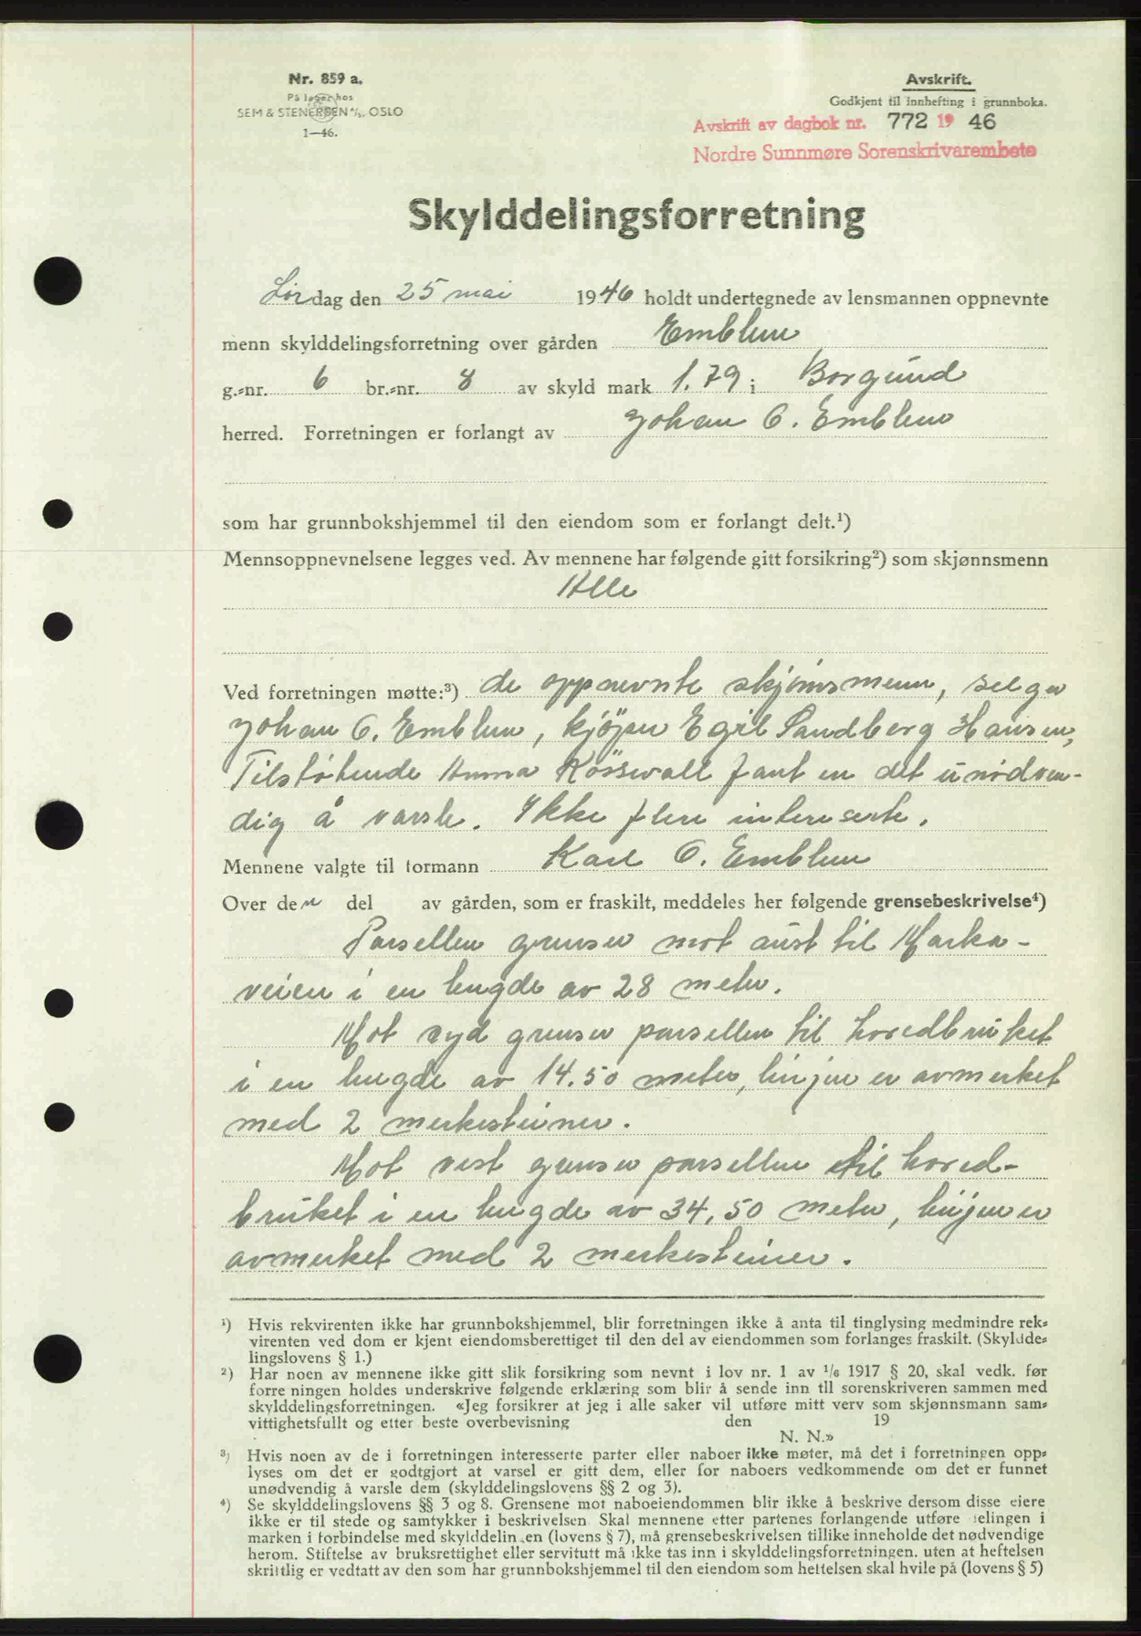 Nr. 859 a.
På lager hos
SEM & STENERSEN A/S, OSLO
1—46.
Avskrift.
Godkjent til innhefting i grunnboka.
Avskrift av dagbok nr. 772 19 46
Nordre Sunnmøre Sorenskrivarembete
Skylddelingsforretning
Lørdag den 25 mai 1946 holdt undertegnede av lensmannen oppnevnte
menn skylddelingsforretning over gården Emblem
g.-nr. 6 br.-nr. 8 av skyld mark 1.79 i Borgund
herred. Forretningen er forlangt av Johan O. Emblem
som har grunnbokshjemmel til den eiendom som er forlangt delt.¹)
Mennsoppnevnelsene legges ved. Av mennene har følgende gitt forsikring²) som skjønnsmenn
Alle
Ved forretningen møtte:³) de oppnevnte skjønsmenn, selger
Johan O. Emblem, kjöper Egil Sandberg Hansen,
Tilstøtende Anna Rösevall fant en det unødven-
dig å varsle. Ikke flere intereserte.
Mennene valgte til formann Karl O. Emblem
Over den del av gården, som er fraskilt, meddeles her følgende grensebeskrivelse⁴)
Parsellen grenser mot aust til Marka-
veien i en lengde av 28 meter.
Mot syd grenser parsellen til hovedbruket
i en lengde av 14.50 meter, linjen er avmerket
med 2 merkesteiner.
Mot vest grenser parsellen til hoved-
bruket i en lengde av 34,50 meter, linjen er
avmerket med 2 merkesteiner.
¹) Hvis rekvirenten ikke har grunnbokshjemmel, blir forretningen ikke å anta til tinglysing medmindre rek-
virenten ved dom er kjent eiendomsberettiget til den del av eiendommen som forlanges fraskilt. (Skyldde-
lingslovens § 1.)
²) Har noen av mennene ikke gitt slik forsikring som nevnt i lov nr. 1 av 1/6 1917 § 20, skal vedk. før
forre ningen holdes underskrive følgende erklæring som blir å sende inn til sorenskriveren sammen med
skylddelingsforretningen. «Jeg forsikrer at jeg i alle saker vil utføre mitt verv som skjønnsmann sam-
vittighetsfullt og etter beste overbevisning den 19
N. N.»
³) Hvis noen av de i forretningen interesserte parter eller naboer ikke møter, må det i forretningen opp-
lyses om det er godtgjort at varsel er gitt dem, eller for naboers vedkommende om det er funnet
unødvendig å varsle dem (skylddelingslovens §§ 2 og 3).
⁴) Se skylddelingslovens §§ 3 og 8. Grensene mot naboeiendommen blir ikke å beskrive dersom disse eiere
ikke er til stede og samtykker i beskrivelsen Skal mennene etter partenes forlangende utføre delingen i
marken i forbindelse med skylddelin en (lovens § 7), må grensebeskrivelsen tillike inneholde det nødvendige
herom. Stiftelse av bruksrettighet eller servitutt må ikke tas inn i skylddelingsforretningen. uten at heftelsen
skriftlig er vedtatt av den som har grunnbokshjemmel til den eiendom som heftelsen skal hvile på (lovens § 5)